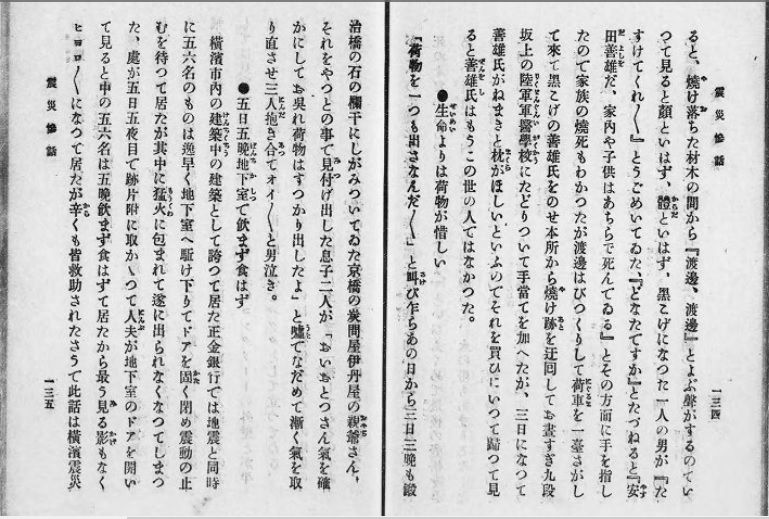 震災慘話
一三四
ると、燒け落ちた材木の間から『渡邊、渡邊』とよぶ聲がするのてい
つて見ると顏といはず、體といはず、黑こげになつた一人の男が『た
すけてくれ〳〵』とうごめいてゐた、『どなたですか』とたづねると『安
田善雄だ、家內や子供はあちらで死んでゐる』とその方面に手を指し
たので家族の燒死もわかつたが渡邊はびつくりして荷車を一臺さがし
て來て黑こげの善雄氏をのせ本所から燒け跡を迂回してお晝すぎ九段
坂上の陸軍軍醫學校にたどりついて手當てを加へたが、三日になつて
善雄氏がねまきと枕がほしいといふのでそれを買ひにいつて歸つて見
ると善雄氏はもうこの世の人ではなかつた。
●生命よりは荷物が惜しい
『荷物を一つも出さなんだ〳〵』と叫び乍らあの日から三日三晩も鍛
治橋の石の欄干にしがみついてゐた京橋の炭問屋伊丹屋の親爺さん、
それをやつとの事で見付け出した息子二人が『おいおとつさん氣を確
かにしてお吳れ荷物はすつかり出したよ』と噓でなだめて漸く氣を取
り直させ三人抱き合てオイ〳〵と男泣き。
●五日五晩地下室で飮まず食はず
橫濱市內の建築中の建築として誇つて居た正金銀行では地震と同時
に五六名のものは逸早く地下室へ駈け下りてドアを固く閉め震動の止
むを待つて居たが其中に猛火に包まれて遂に出られなくなつてしまつ
た、處が五日五夜目で跡片附に取かゝつて人夫が地下室のドアを開い
て見ると中の五六名は五晩飮まず食はずて居たから最う見る影もなく
ヒヨロ〳〵になつて居たが辛くも皆救助されたさうて此話は橫濱震災
震災慘話
一三五